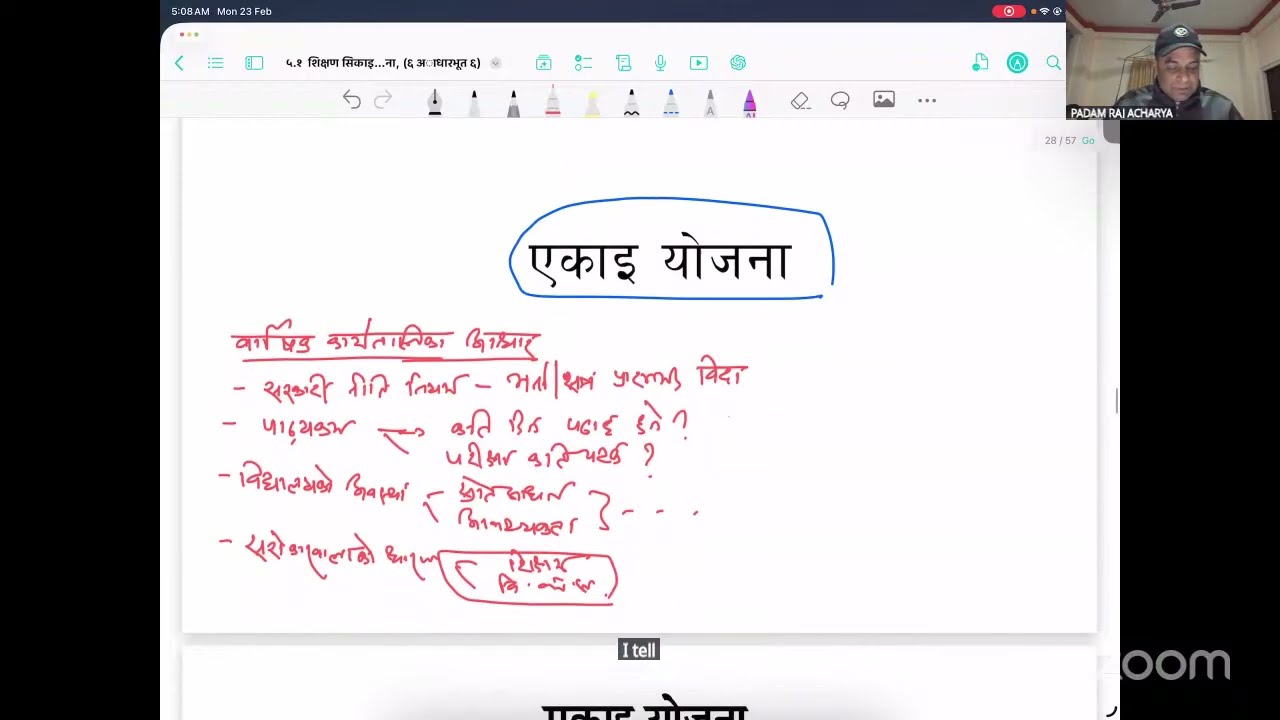 5:08 AM Mon 23 Feb
५.१ शिक्षण सिकाइ...ना, (६ अाधारभूत ६)
PADAM RAJ ACHARYA
28 / 57 Go
एकाइ योजना
वार्षिक कार्यतालिका आधार
- सरकारी नीति नियम - भर्ना विदा
- पाठ्यक्रम कति दिन पढाइ हुने ?
परीक्षा कति पटक ?
- विद्यालयको अवस्था स्रोत साधन
आवश्यकता - - -
- सरोकारवालाको धारणा शिक्षक
वि. व्य. स.
I tell
zoom
एकाइ योजना